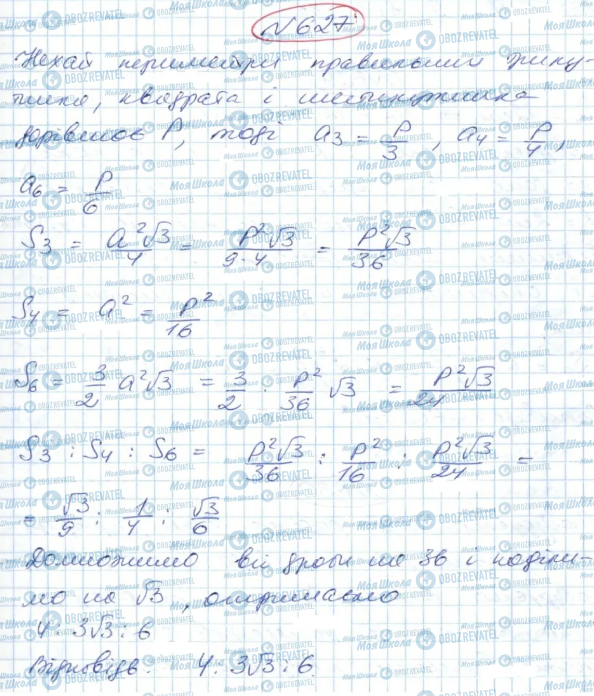 №627
Нехай периметри правильний трику-
тника, квадрата і шестикутника
дорівнює P, тоді a₃ = P/3, a₄ = P/4,
a₆ = P/6
S₃ = a²√3/4 = P²√3/9·4 = P²√3/36
S₄ = a² = P²/16
S₆ = 3/2 a²√3 = 3/2 · P²/36 √3 = P²√3/24
S₃ : S₄ : S₆ = P²√3/36 : P²/16 : P²√3/24 =
= √3/9 : 1/4 : √3/6
Домножимо всі дроби на 36 і поділи-
мо на √3, отримаємо
4 : 3√3 : 6
Відповідь: 4 : 3√3 : 6